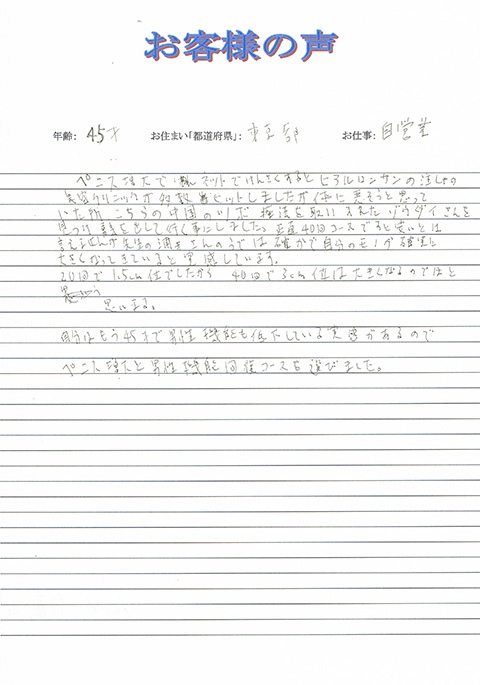 お客様の声
年齢: 45才 お住まい「都道府県」: 東京都 お仕事: 自営業
ペニス増大で ネットでけんさくするとヒアルロンサンの注しゃの
クリニックが多数ヒットしましたが体に悪そうと思って
いた所 こちらの中国のツボ 療法を取り入れた ゾウダイさんを
見つけ 勇気を出して行く事にしました。正直40回コースですと安いとは
言えませんが先生の さんのうでは確かで自分のモノが確実に
大きくなってきていると実感しています。
20回で1.5cm位でしたから 40回で3cm位は大きくなるのではと
思います。
自分はもう45才で男性機能も低下している実感があるので
ペニス増大と男性機能回復コースを選びました。